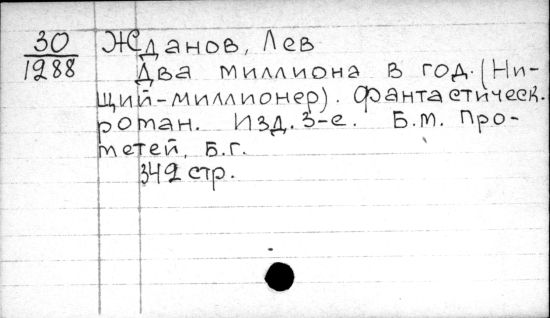 30 Жданов, Лев
1288 Два миллиона в год. (Ни-
щий-миллионер). Фантастическ.
роман. Изд. 3-е. Б.м. Про-
метей, Б.г.
342 стр.